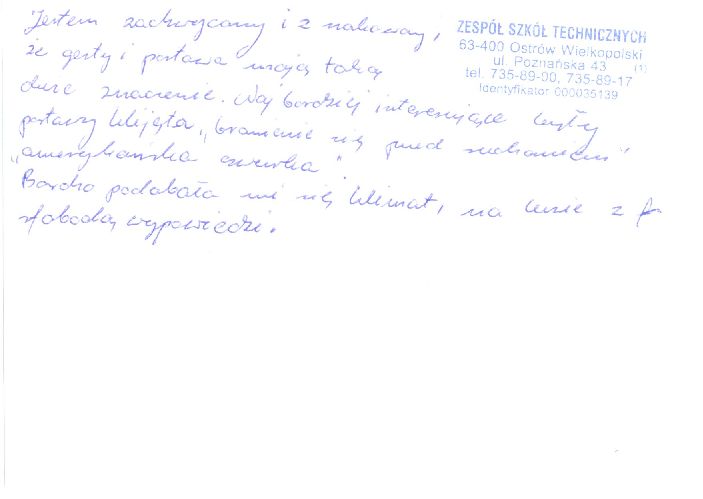 Jestem zachwycony i z
że gesty i postawa mają taką
duże znaczenie. Najbardziej interesujące były
postawy klijęta „bronienie się przed
„amerykańska czwórka”.
Bardzo podobała mi się klimat, na luzie z
słobodą wypowiedzi.
ZESPÓŁ SZKÓŁ TECHNICZNYCH
63-400 Ostrów Wielkopolski
ul. Poznańska 43 (1)
tel. 735-89-00, 735-89-17
Identyfikator 000035139